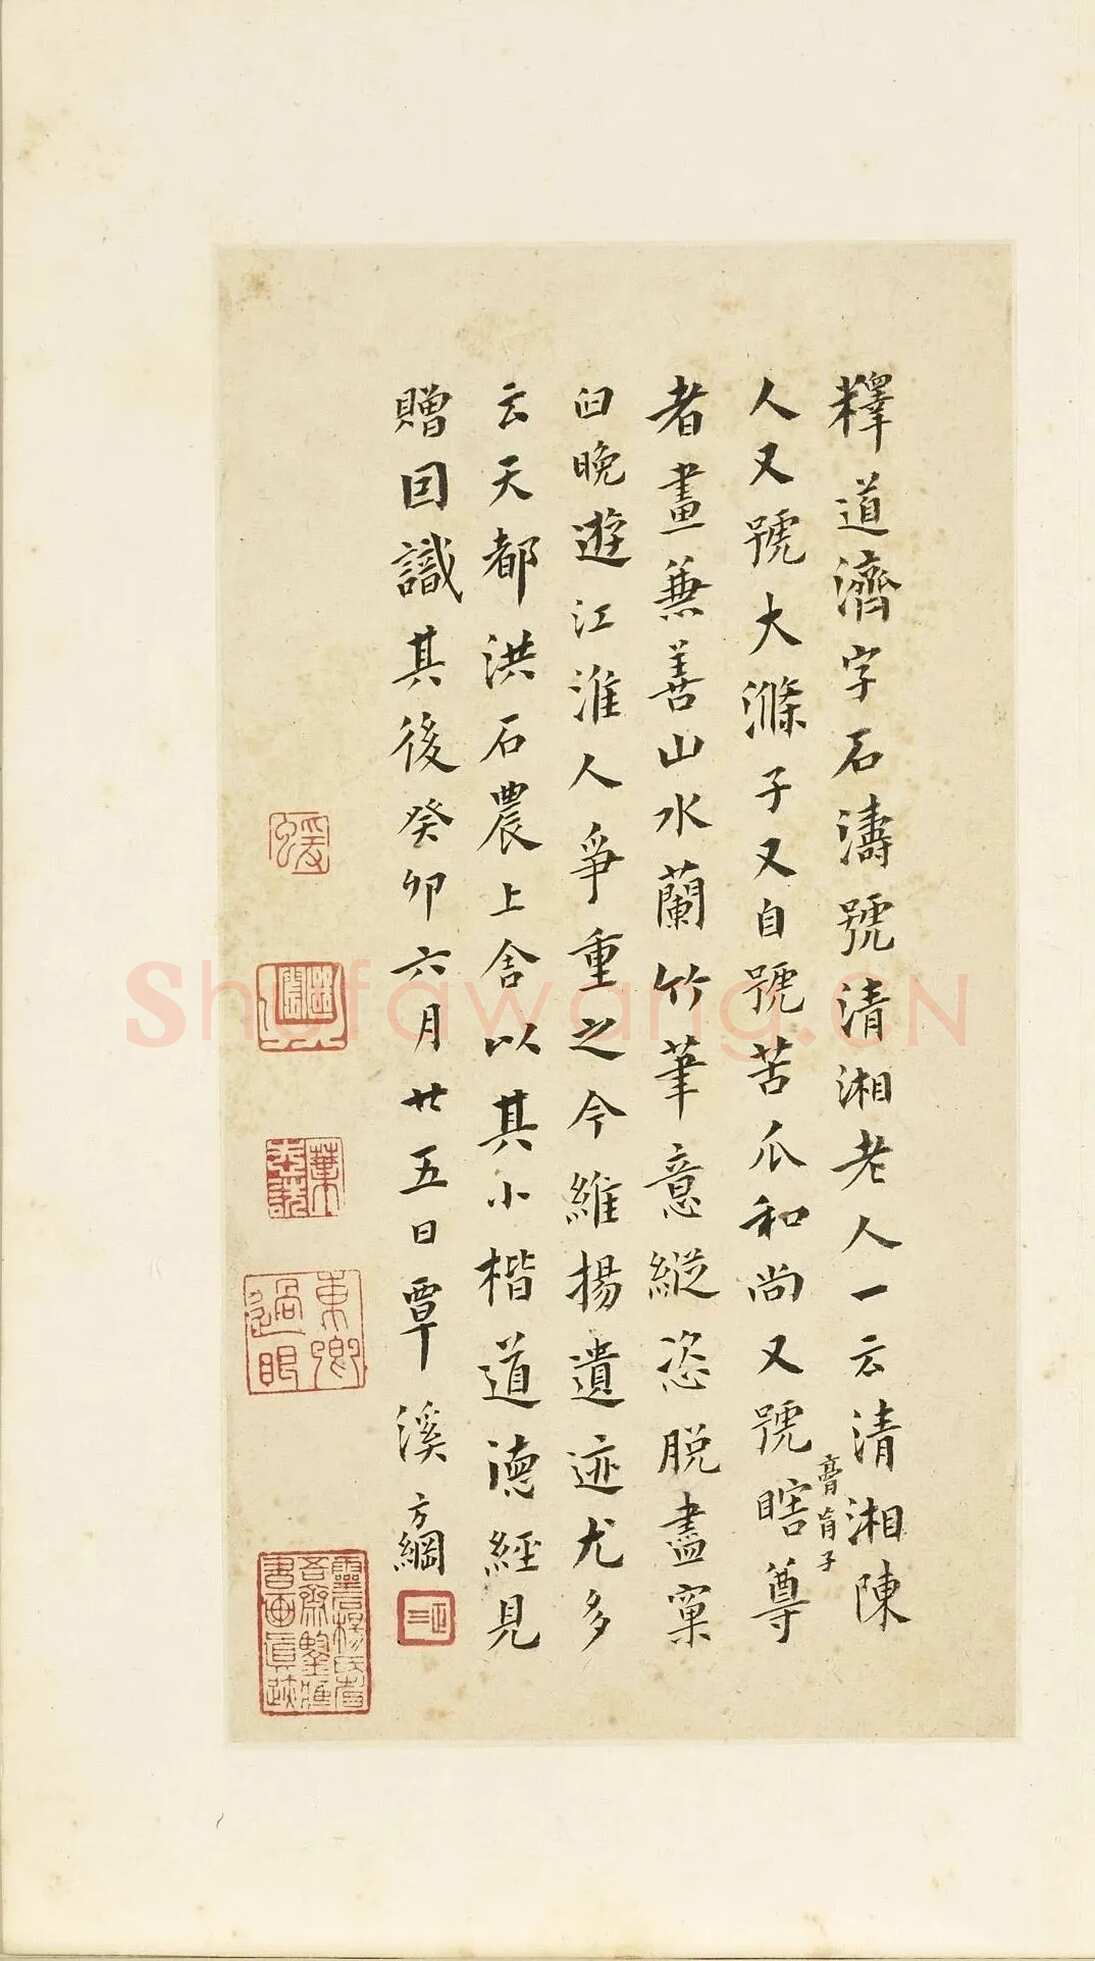 釋道濟字石濤號清湘老人一云清湘陳
人又號大滌子又自號苦瓜和尚又號瞎尊
膏肓子
者畫兼善山水蘭竹筆意縱恣脫盡窠
臼晚遊江淮人爭重之今維揚遺迹尤多
云天都洪石農上舍以其小楷道德經見
贈因識其後癸卯六月廿五日覃溪方綱
東卿過眼
靈石楊氏墨林吾齋鑒藏書畫真跡
Shufawang.CN